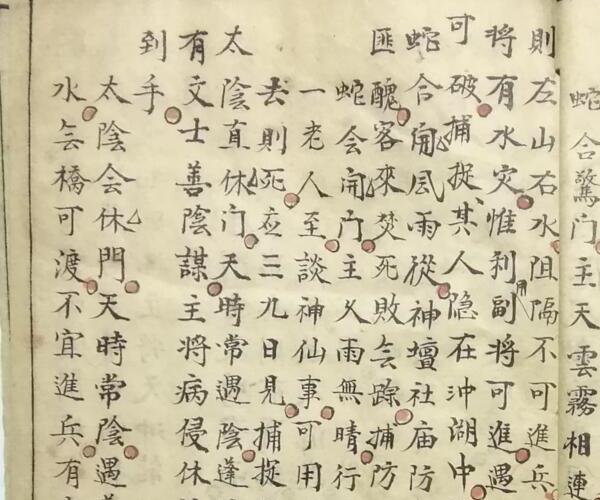 蛇合驚门主天雲霧相連
則左山右水阻隔不可進兵
將有水灾惟利副將可進遇
可破捕捉其人隐在沖湖中
蛇合開风雨從神壇社庙防
匪醜客來焚死敗会踪捕防
蛇会開门主久雨無晴行
一老人至談神仙事可用
去則死应三九日見捕捉
太陰直休门天時常遇陰逢
有文士善陰謀主將病侵休
到手
太陰会休門天時常陰遇
水会橋可渡不宜進兵有